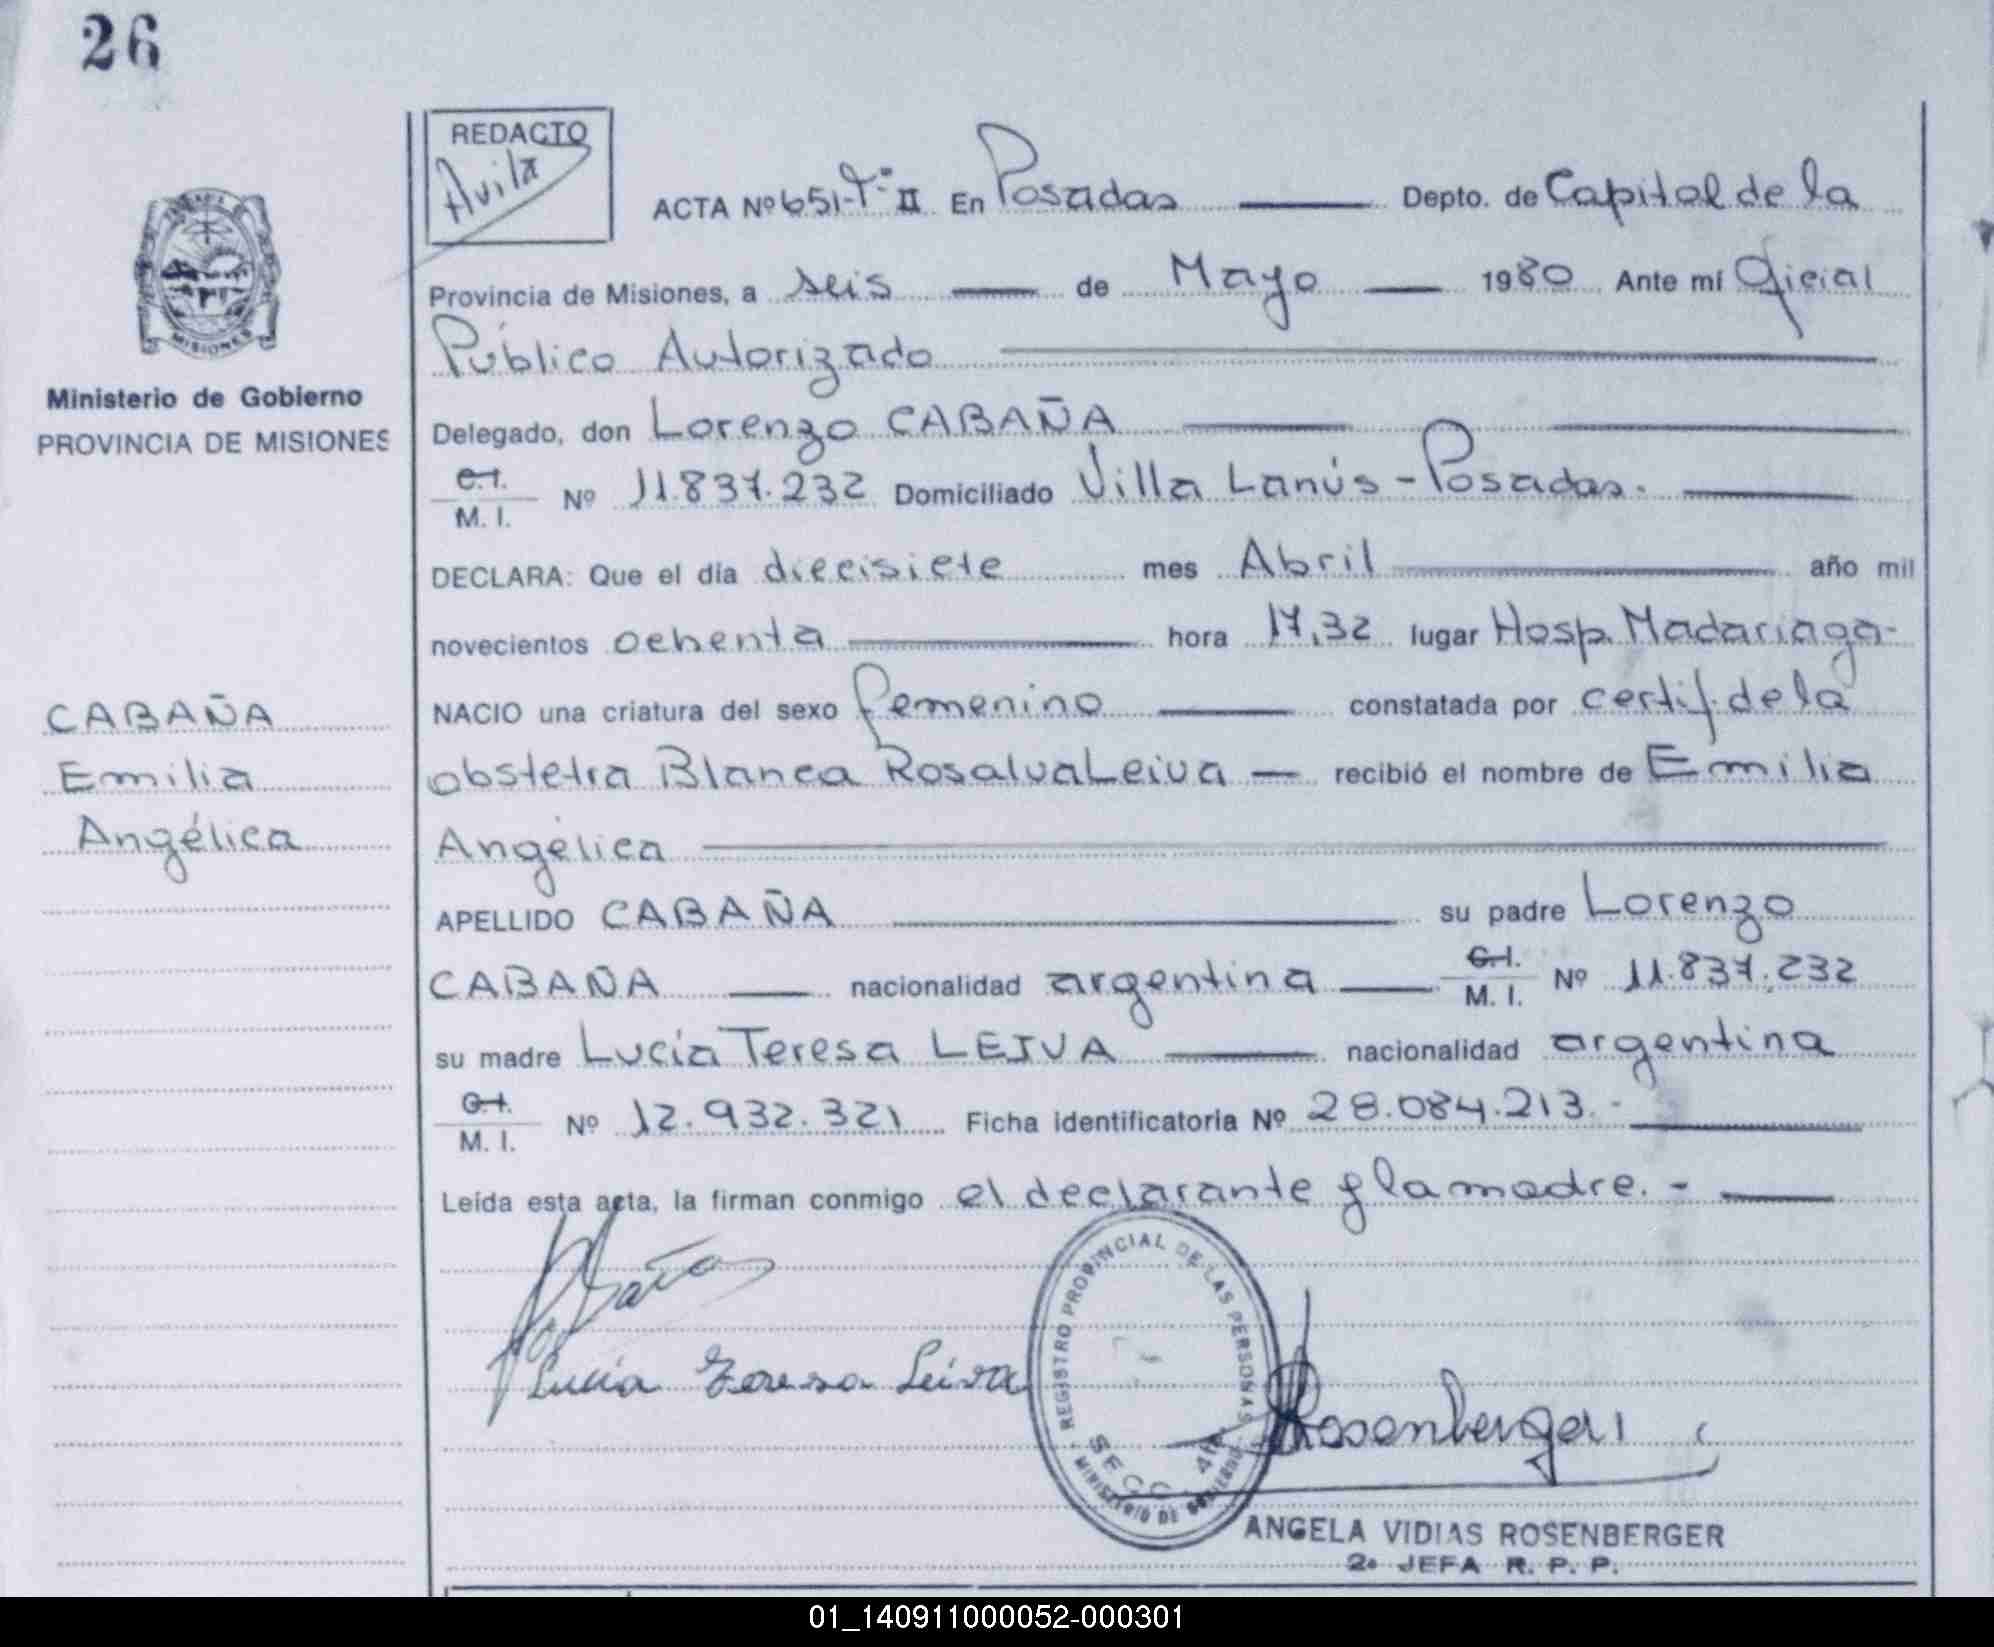 26
REDACTO
Avila
ACTA Nº 651-Tº II En Posadas Depto. de Capital de la
Provincia de Misiones, a seis de Mayo 1980 Ante mí Oficial
Público Autorizado
Delegado, don Lorenzo CABAÑA
C.I.
M. I. Nº 11.837.232 Domiciliado Villa Lanús - Posadas.
DECLARA: Que el día diecisiete mes Abril año mil
novecientos ochenta hora 17,32 lugar Hosp. Madariaga-
NACIO una criatura del sexo femenino constatada por certif. de la
obstetra Blanca Rosalva Leiva — recibió el nombre de Emilia
Angélica
APELLIDO CABAÑA su padre Lorenzo
CABAÑA nacionalidad argentina C.I.
M. I. Nº 11.837.232
su madre Lucía Teresa LEIVA nacionalidad argentina
C.I.
M. I. Nº 12.932.321 Ficha identificatoria Nº 28.084.213.-
Leída esta acta, la firman conmigo el declarante y la madre.-
Lucia Teresa Leiva
Rosenberger
REGISTRO PROVINCIAL DE LAS PERSONAS
SECC. 4ta
MINISTERIO DE GOBIERNO
ANGELA VIDIAS ROSENBERGER
2a JEFA R. P. P.
MISIONES
Ministerio de Gobierno
PROVINCIA DE MISIONES
CABAÑA
Emilia
Angélica
01_140911000052-000301